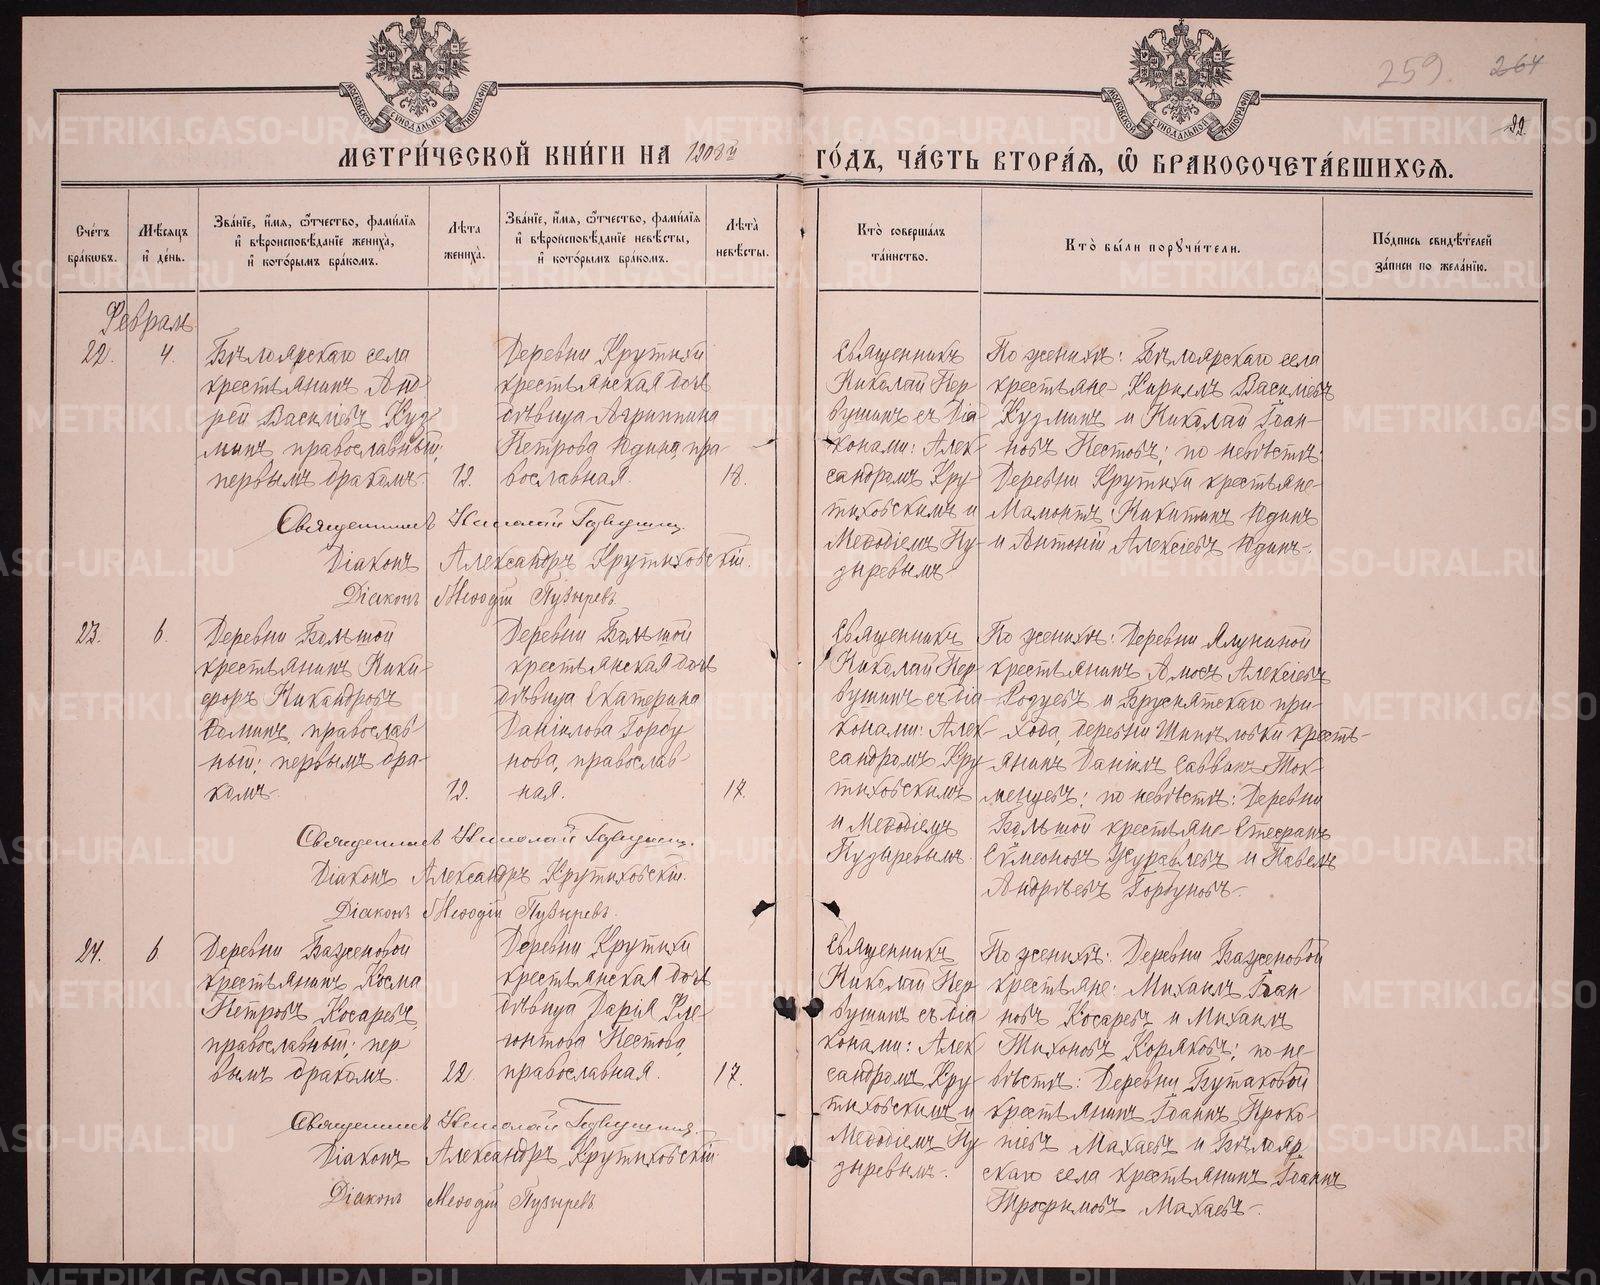 259. 264
92
МЕТРИ́ЧЕСКОЙ КНИ́ГИ НА 1908й ГО́ДЪ, ЧА́СТЬ ВТОРА́Я, Ѽ БРАКОСОЧЕТА́ВШИХСЯ.
Сче́тъ бра́кωвъ.
Мѣ́сяцъ и҆ де́нь.
Зва́нїе, и҆́мя, ѻ҆́тчество, фами́лїя
и҆ вѣроисповѣ́данїе жениха̀,
и҆ кото́рымъ бра́комъ.
Лѣ́та жениха̀.
Зва́нїе, и҆́мя, ѻ҆́тчество, фами́лїя
и҆ вѣроисповѣ́данїе невѣ́сты,
и҆ кото́рымъ бра́комъ.
Лѣ́та невѣ́сты.
Кто̀ соверша́лъ
та́инство.
Кто̀ бы́ли порꙋчи́тели.
По́дпись свидѣ́телей
за́писи по жела́нїю.
Февраль
22. 4.
Бѣлоярскаго села
крестьянинъ Анд-
рей Василіевъ Куз-
минъ, православный;
первымъ бракомъ.
Деревни Крутихи
крестьянская дочь
дѣвица Агриппина
Петрова Юдина, пра-
вославная.
18.
Священникъ
Николай Пер-
вушинъ съ діа-
конами: Алек-
сандромъ Кру-
тиховскимъ и
Меѳодіемъ Пу-
зыревымъ
По женихѣ: Бѣлоярскаго села
крестьяне Кириллъ Васильевъ
Кузминъ и Николай Іоан-
новъ Пестовъ; по невѣстѣ:
Деревни Крутихи крестьяне
Мамонтъ Никитинъ Юдинъ
и Антоній Алексіевъ Юдинъ.
Священникъ Николай Первушинъ
Діаконъ Александръ Крутиховскій.
Діаконъ Меѳодій Пузыревъ
23. 6.
Деревни Большой
крестьянинъ Ники-
форъ Никандровъ
Соминъ, православ-
ный; первымъ бра-
комъ.
Деревни Большой
крестьянская дочь
дѣвица Екатерина
Даніилова Горбу-
нова, православ-
ная.
17.
Священникъ
Николай Пер-
вушинъ съ діа-
конами: Алек-
сандромъ Кру-
тиховскимъ
и Меѳодіемъ
Пузыревымъ.
По женихѣ: Деревни Ялуниной
крестьянинъ Амосъ Алексіевъ
и Бруснятскаго при-
хода, деревни Шипѣловки кресть-
янинъ Даніилъ Саввинъ Ток-
менцевъ; по невѣстѣ: Деревни
Большой крестьяне Стефанъ
Сѵмеоновъ Журавлевъ и Павелъ
Андреевъ Горбуновъ.
Священникъ Николай Первушинъ.
Діаконъ Александръ Крутиховскій.
Діаконъ Меѳодій Пузыревъ.
24. 6
Деревни Баженовой
крестьянинъ Косма
Петровъ Косаревъ,
православный; пер-
вымъ бракомъ.
22.
Деревни Крутихи
крестьянская дочь
дѣвица Дарія Кле-
онтова Пестова,
православная.
17.
Священникъ
Николай Пер-
вушинъ съ діа-
конами: Алек-
сандромъ Кру-
тиховскимъ и
Меѳодіемъ Пу-
зыревымъ.
По женихѣ: Деревни Баженовой
крестьяне: Михаилъ Іоан-
новъ Косаревъ и Михаилъ
Тихоновъ Коряковъ; по не-
вѣстѣ: Деревни Бутаковой
крестьянинъ Іоаннъ Проко-
піевъ Махаевъ и Бѣлояр-
скаго села крестьянинъ Іоаннъ
Трофимовъ Махаевъ.
Священникъ Николай Первушинъ.
Діаконъ Александръ Крутиховскій
Діаконъ Меѳодій Пузыревъ
METRIKI.GASO-URAL.RU